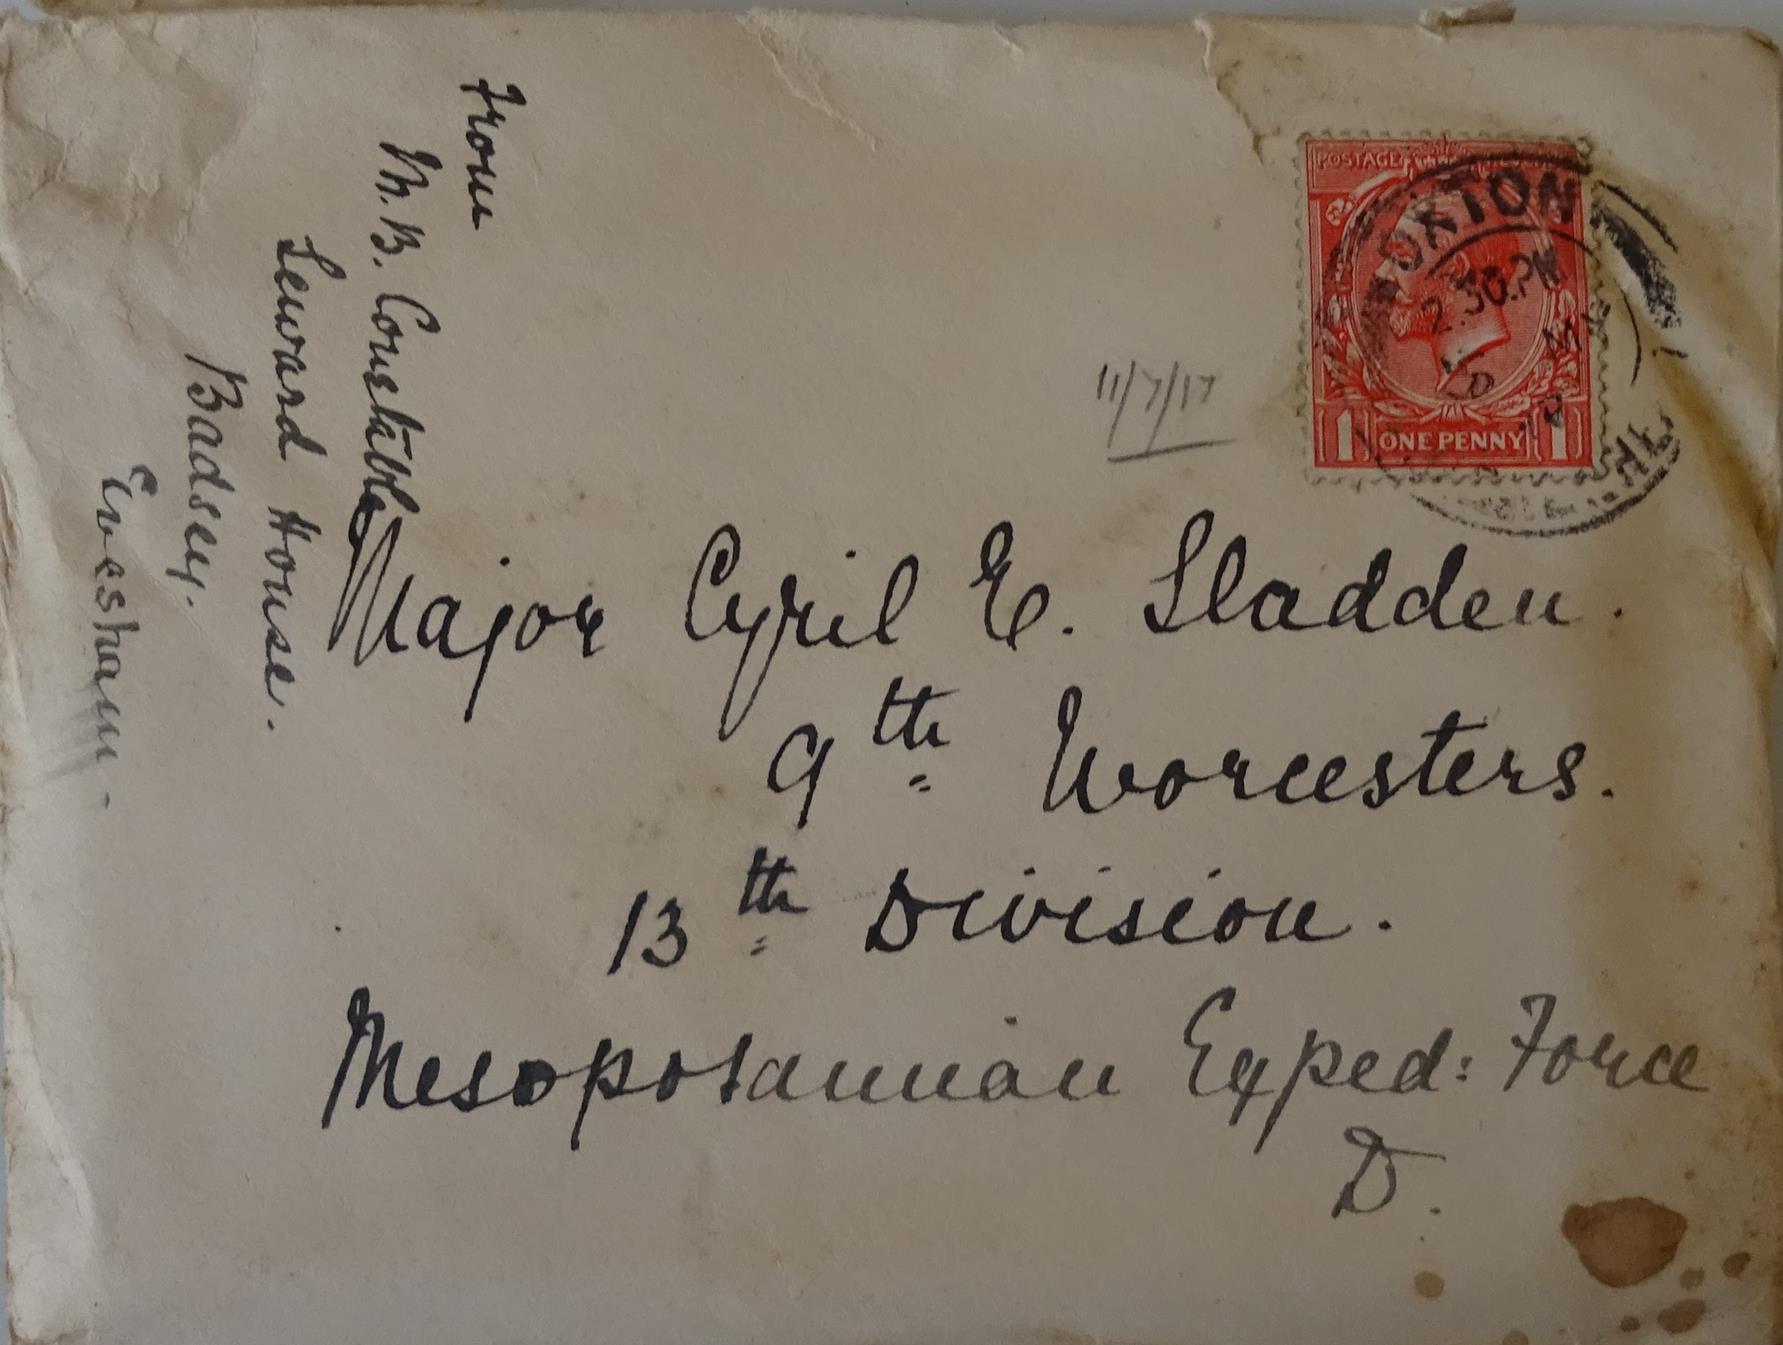 From
M. B. Constable
Seward House.
Badsey.
Evesham.
11/7/17
POSTAGE
2.30.PM
1 ONE PENNY 1
Major Cyril E. Sladden.
9th Worcesters.
13th Division.
Mesopotamian Exped: Force
D.